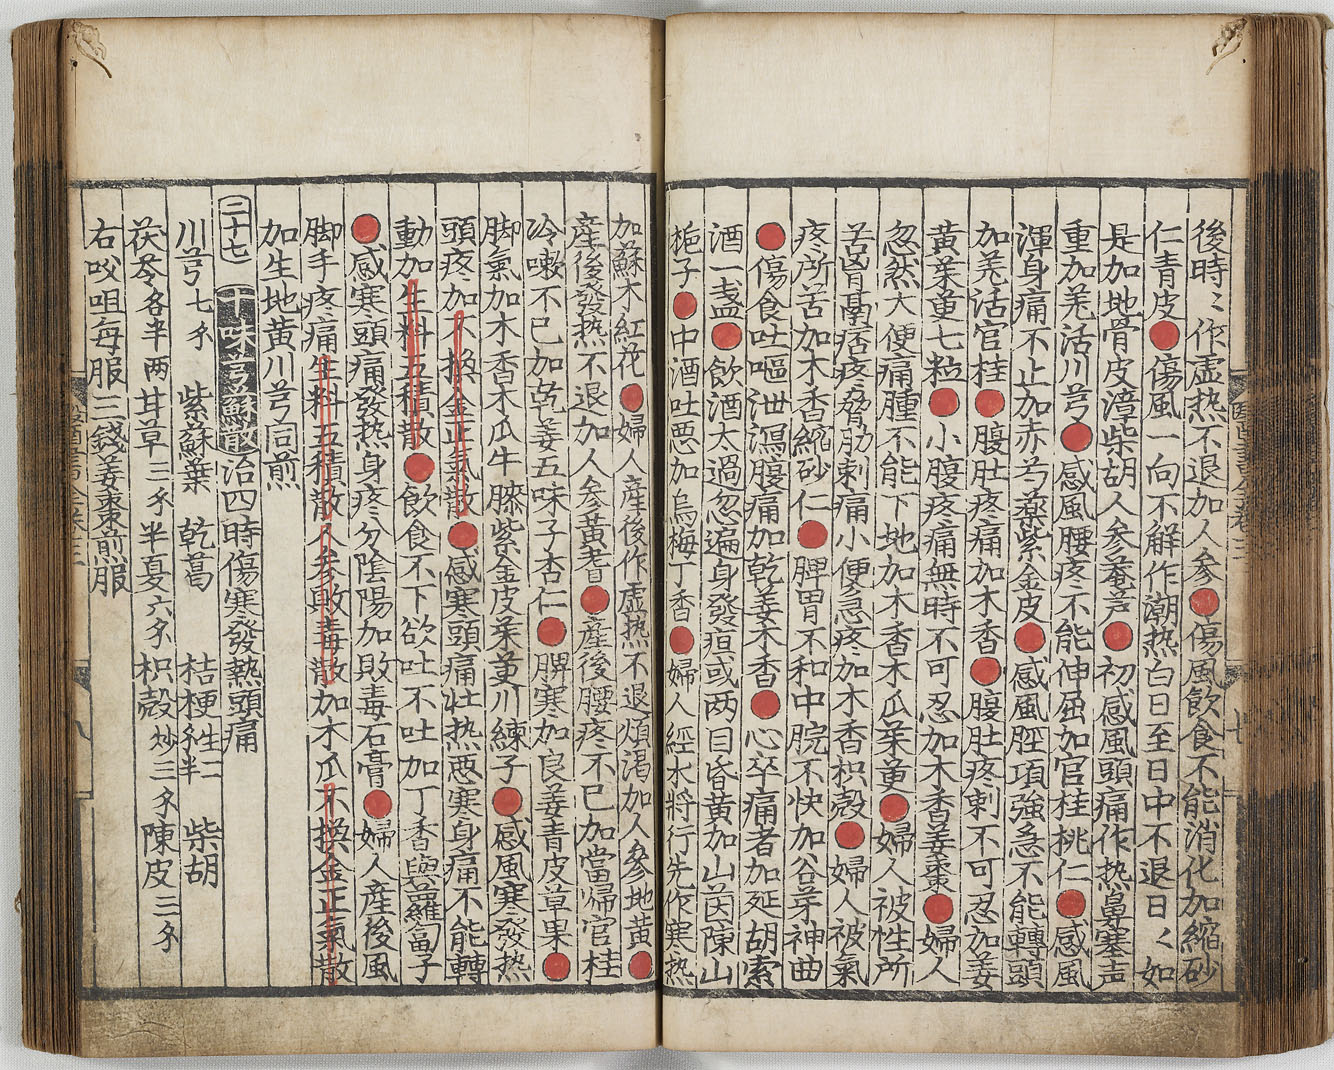 後時〻作虛热不退加人参●傷風飲食不能消化加縮砂
仁青皮●傷風一向不解作潮热白日至日中不退日〻如
是加地骨皮漳柴胡人参菴䕡●初感風頭痛作热鼻塞声
重加羌活川芎●感風腰疼不能伸屈加官桂桃仁●感風
渾身痛不止加赤芍藥紫金皮●感風脛項強急不能轉頭
加羌活官桂●腹肚疼痛加木香●腹肚疼刺不可忍加姜
黄茱萸七粒●小腹疼痛無時不可忍加木香姜棗●婦人
忽然大便痛腫不能下地加木香木瓜茱萸●婦人被性所
苦胷鬲痞疼脅肋刺痛小便急疼加木香枳殻●婦人被氣
疼所苦加木香縮砂仁●脾胃不和中脘不快加谷芽神曲
●傷食吐嘔泄瀉腹痛加乾姜木香●心卒痛者加延胡索
酒一盞●飲酒太過忽遍身發疸或两目昏黄加山茵陳山
栀子●中酒吐悪加烏梅丁香●婦人經水將行先作寒热
加蘇木紅花●婦人産後作虛热不退煩渴加人參地黄●
産後發热不退加人参黄耆●産後腰疼不已加當歸官桂
冷嗽不已加乾姜五味子杏仁●脾寒加良姜青皮草果●
脚氣加木香木瓜牛膝紫金皮茱萸川練子●感風寒發热
頭疼加不換金正氣散●感寒頭痛壮热悪寒身痛不能轉
動加生料五積散●飲食不下欲吐不吐加丁香與蘿蔔子
●感寒頭痛發热身疼分陰陽加敗毒石膏●婦人産後風
脚手疼痛生料五積散人参敗毒散加木瓜不換金正氣散
加生地黄川芎同前
二十七 十味芎蘇散治四時傷寒發熱頭痛
川芎七分 紫蘇葉 乾葛 桔梗生二分半 柴胡
茯苓各半两 甘草三分 半夏六分 枳殻炒三分 陳皮三分
右㕮咀每服三錢姜棗煎服